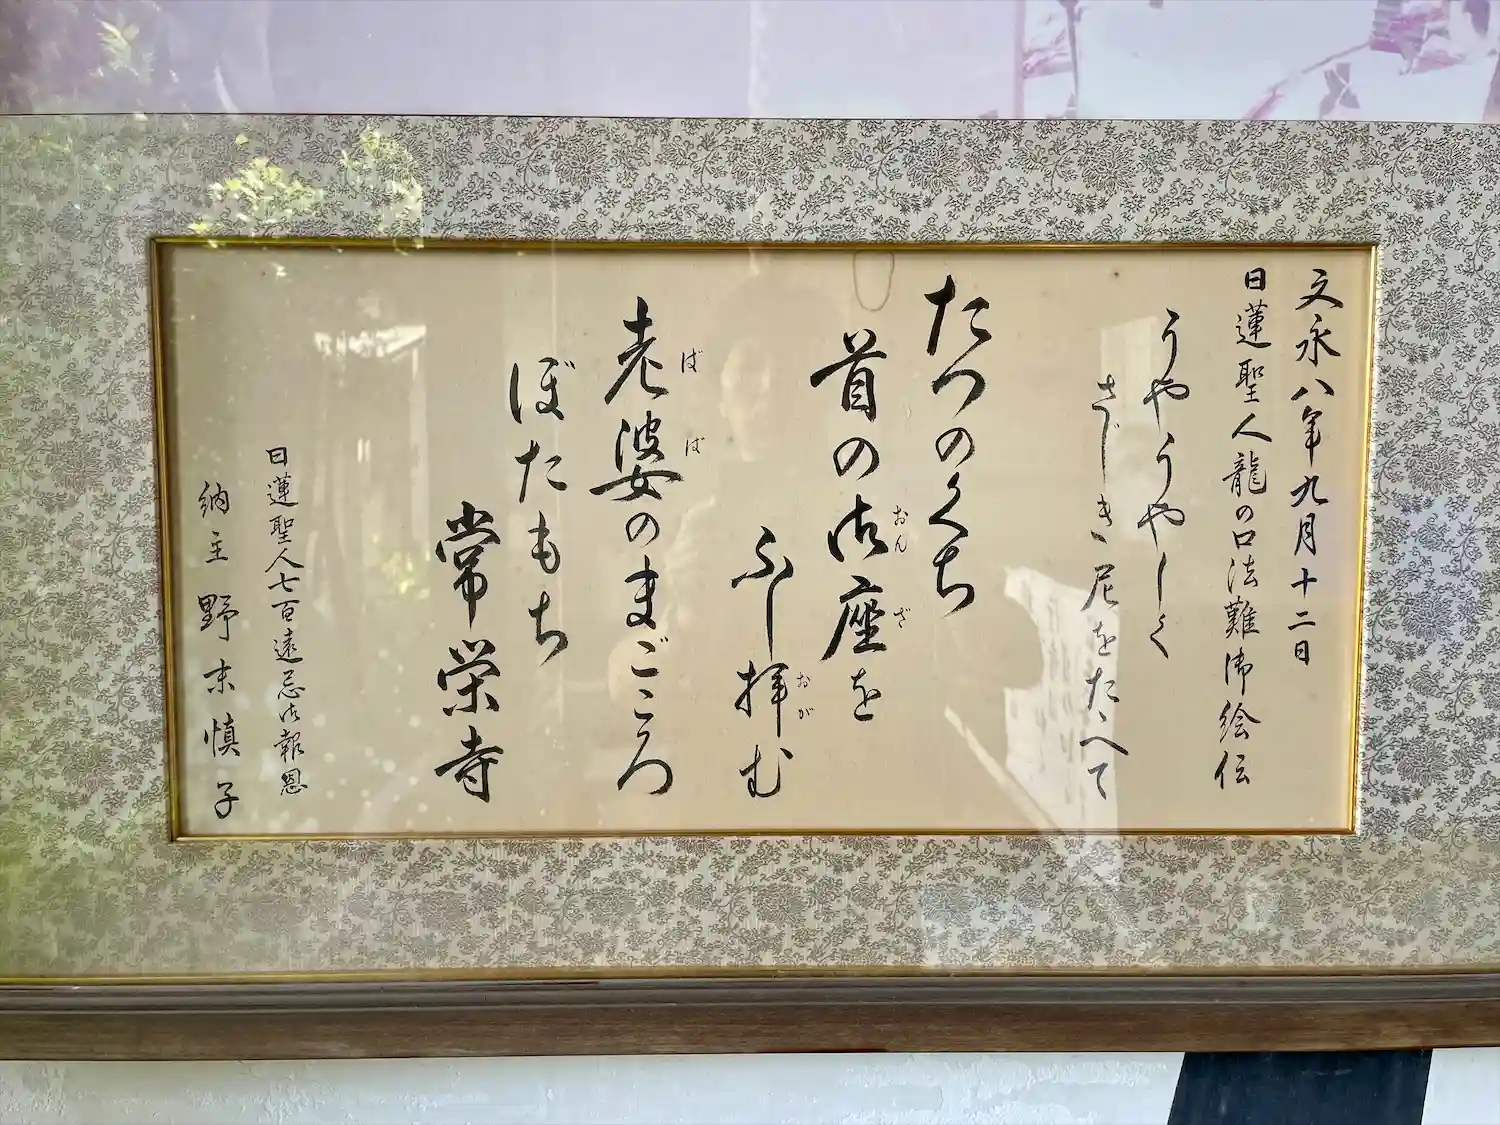 文永八年九月十二日
日蓮聖人龍の口法難御絵伝
うやうやしく
さじき尼をたゝへて
たつのくち
首の御座を
おんざ
ふし拝む
おが
老婆のまごころ
ばば
ぼたもち
常栄寺
日蓮聖人七百遠忌御報恩
納主 野末慎子